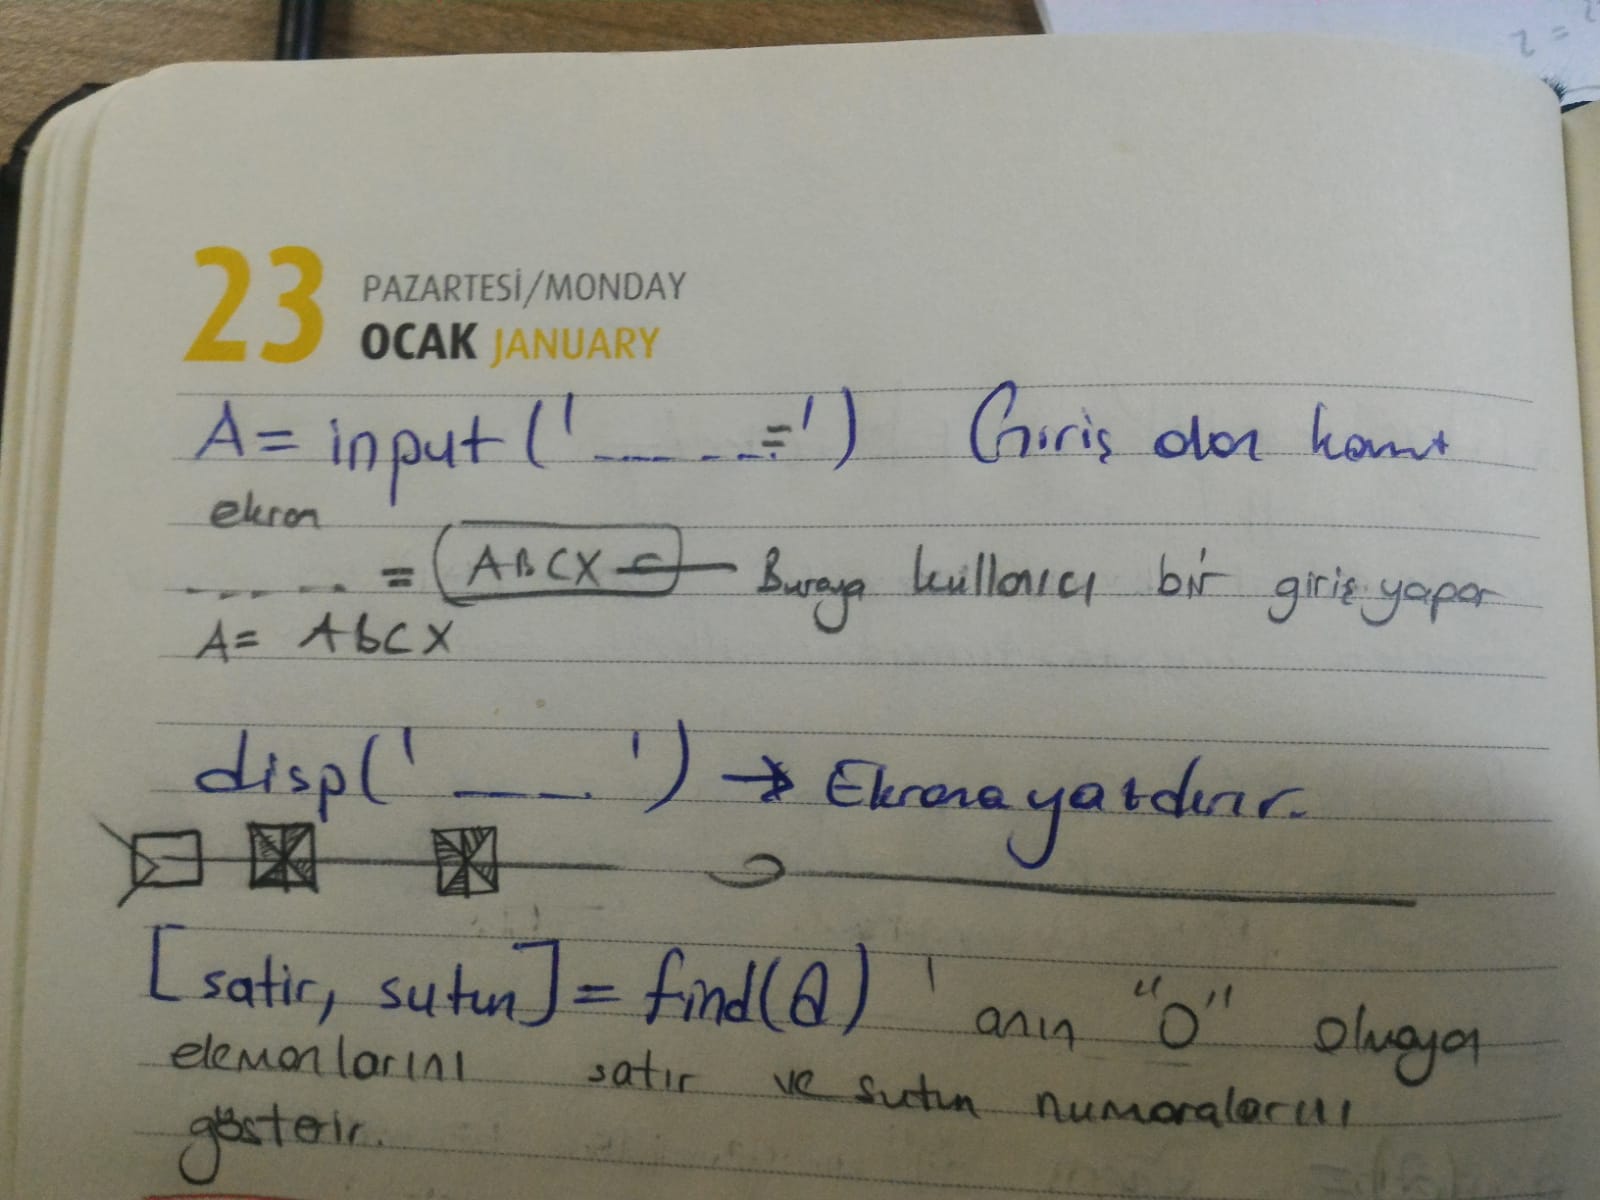 23 PAZARTESİ/MONDAY
OCAK JANUARY
A= input (' __ __ =') Giriş olan komut
ekran
_ _ _ _ = ABCX Buraya kullanıcı bir giriş yapar
A= AbCX
disp(' ___ ') → Ekrana yazdırır.
[satir, sutun] = find(a) ' anın "0" olmayan
elemanlarını satır ve sutun numaralarını
gösterir.